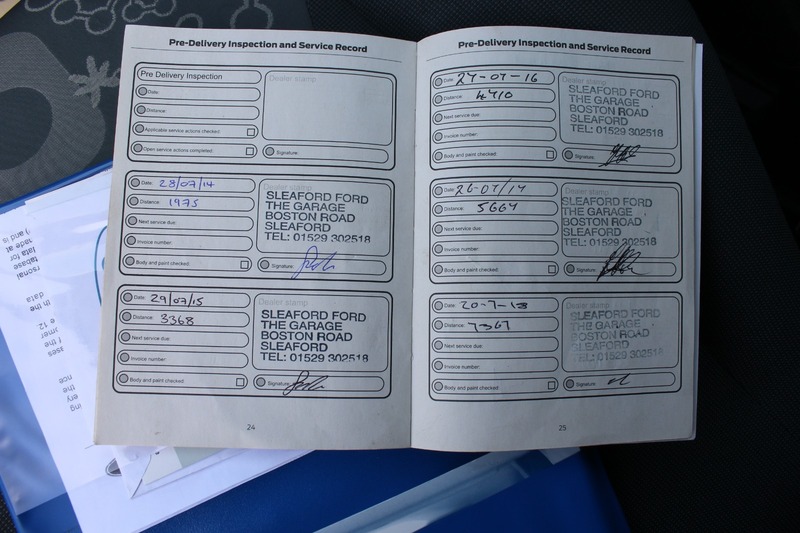 Pre-Delivery Inspection and Service Record
Pre Delivery Inspection
Date:
Distance:
Applicable service actions checked:
Open service actions completed:
Dealer stamp
Signature:
Date: 28/07/14
Distance: 1975
Next service due:
Invoice number:
Body and paint checked:
Dealer stamp
SLEAFORD FORD
THE GARAGE
BOSTON ROAD
SLEAFORD
TEL: 01529 302518
Signature:
Date: 29/07/15
Distance: 3368
Next service due:
Invoice number:
Body and paint checked:
Dealer stamp
SLEAFORD FORD
THE GARAGE
BOSTON ROAD
SLEAFORD
TEL: 01529 302518
Signature:
24
Pre-Delivery Inspection and Service Record
Date: 27-07-16
Distance: 4710
Next service due:
Invoice number:
Body and paint checked:
Dealer stamp
SLEAFORD FORD
THE GARAGE
BOSTON ROAD
SLEAFORD
TEL: 01529 302518
Signature:
Date:
Distance: 5664
Next service due:
Invoice number:
Body and paint checked:
Dealer stamp
SLEAFORD FORD
THE GARAGE
BOSTON ROAD
SLEAFORD
TEL: 01529 302518
Signature:
Date:
Distance: 7367
Next service due:
Invoice number:
Body and paint checked:
Dealer stamp
SLEAFORD FORD
THE GARAGE
BOSTON ROAD
SLEAFORD
TEL: 01529 302518
Signature:
25